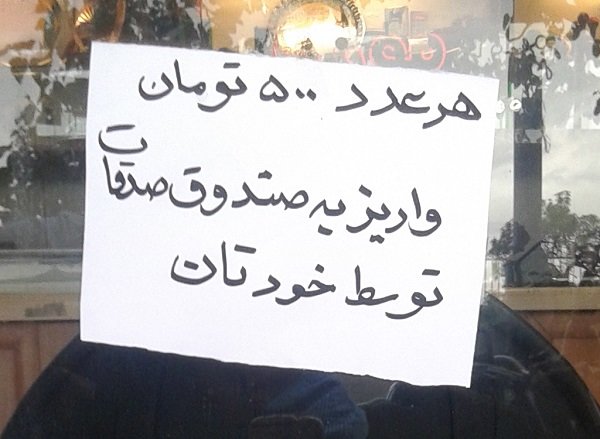 هر عدد ۵۰۰ تومان
واریز به صندوق صدقات
توسط خودتان